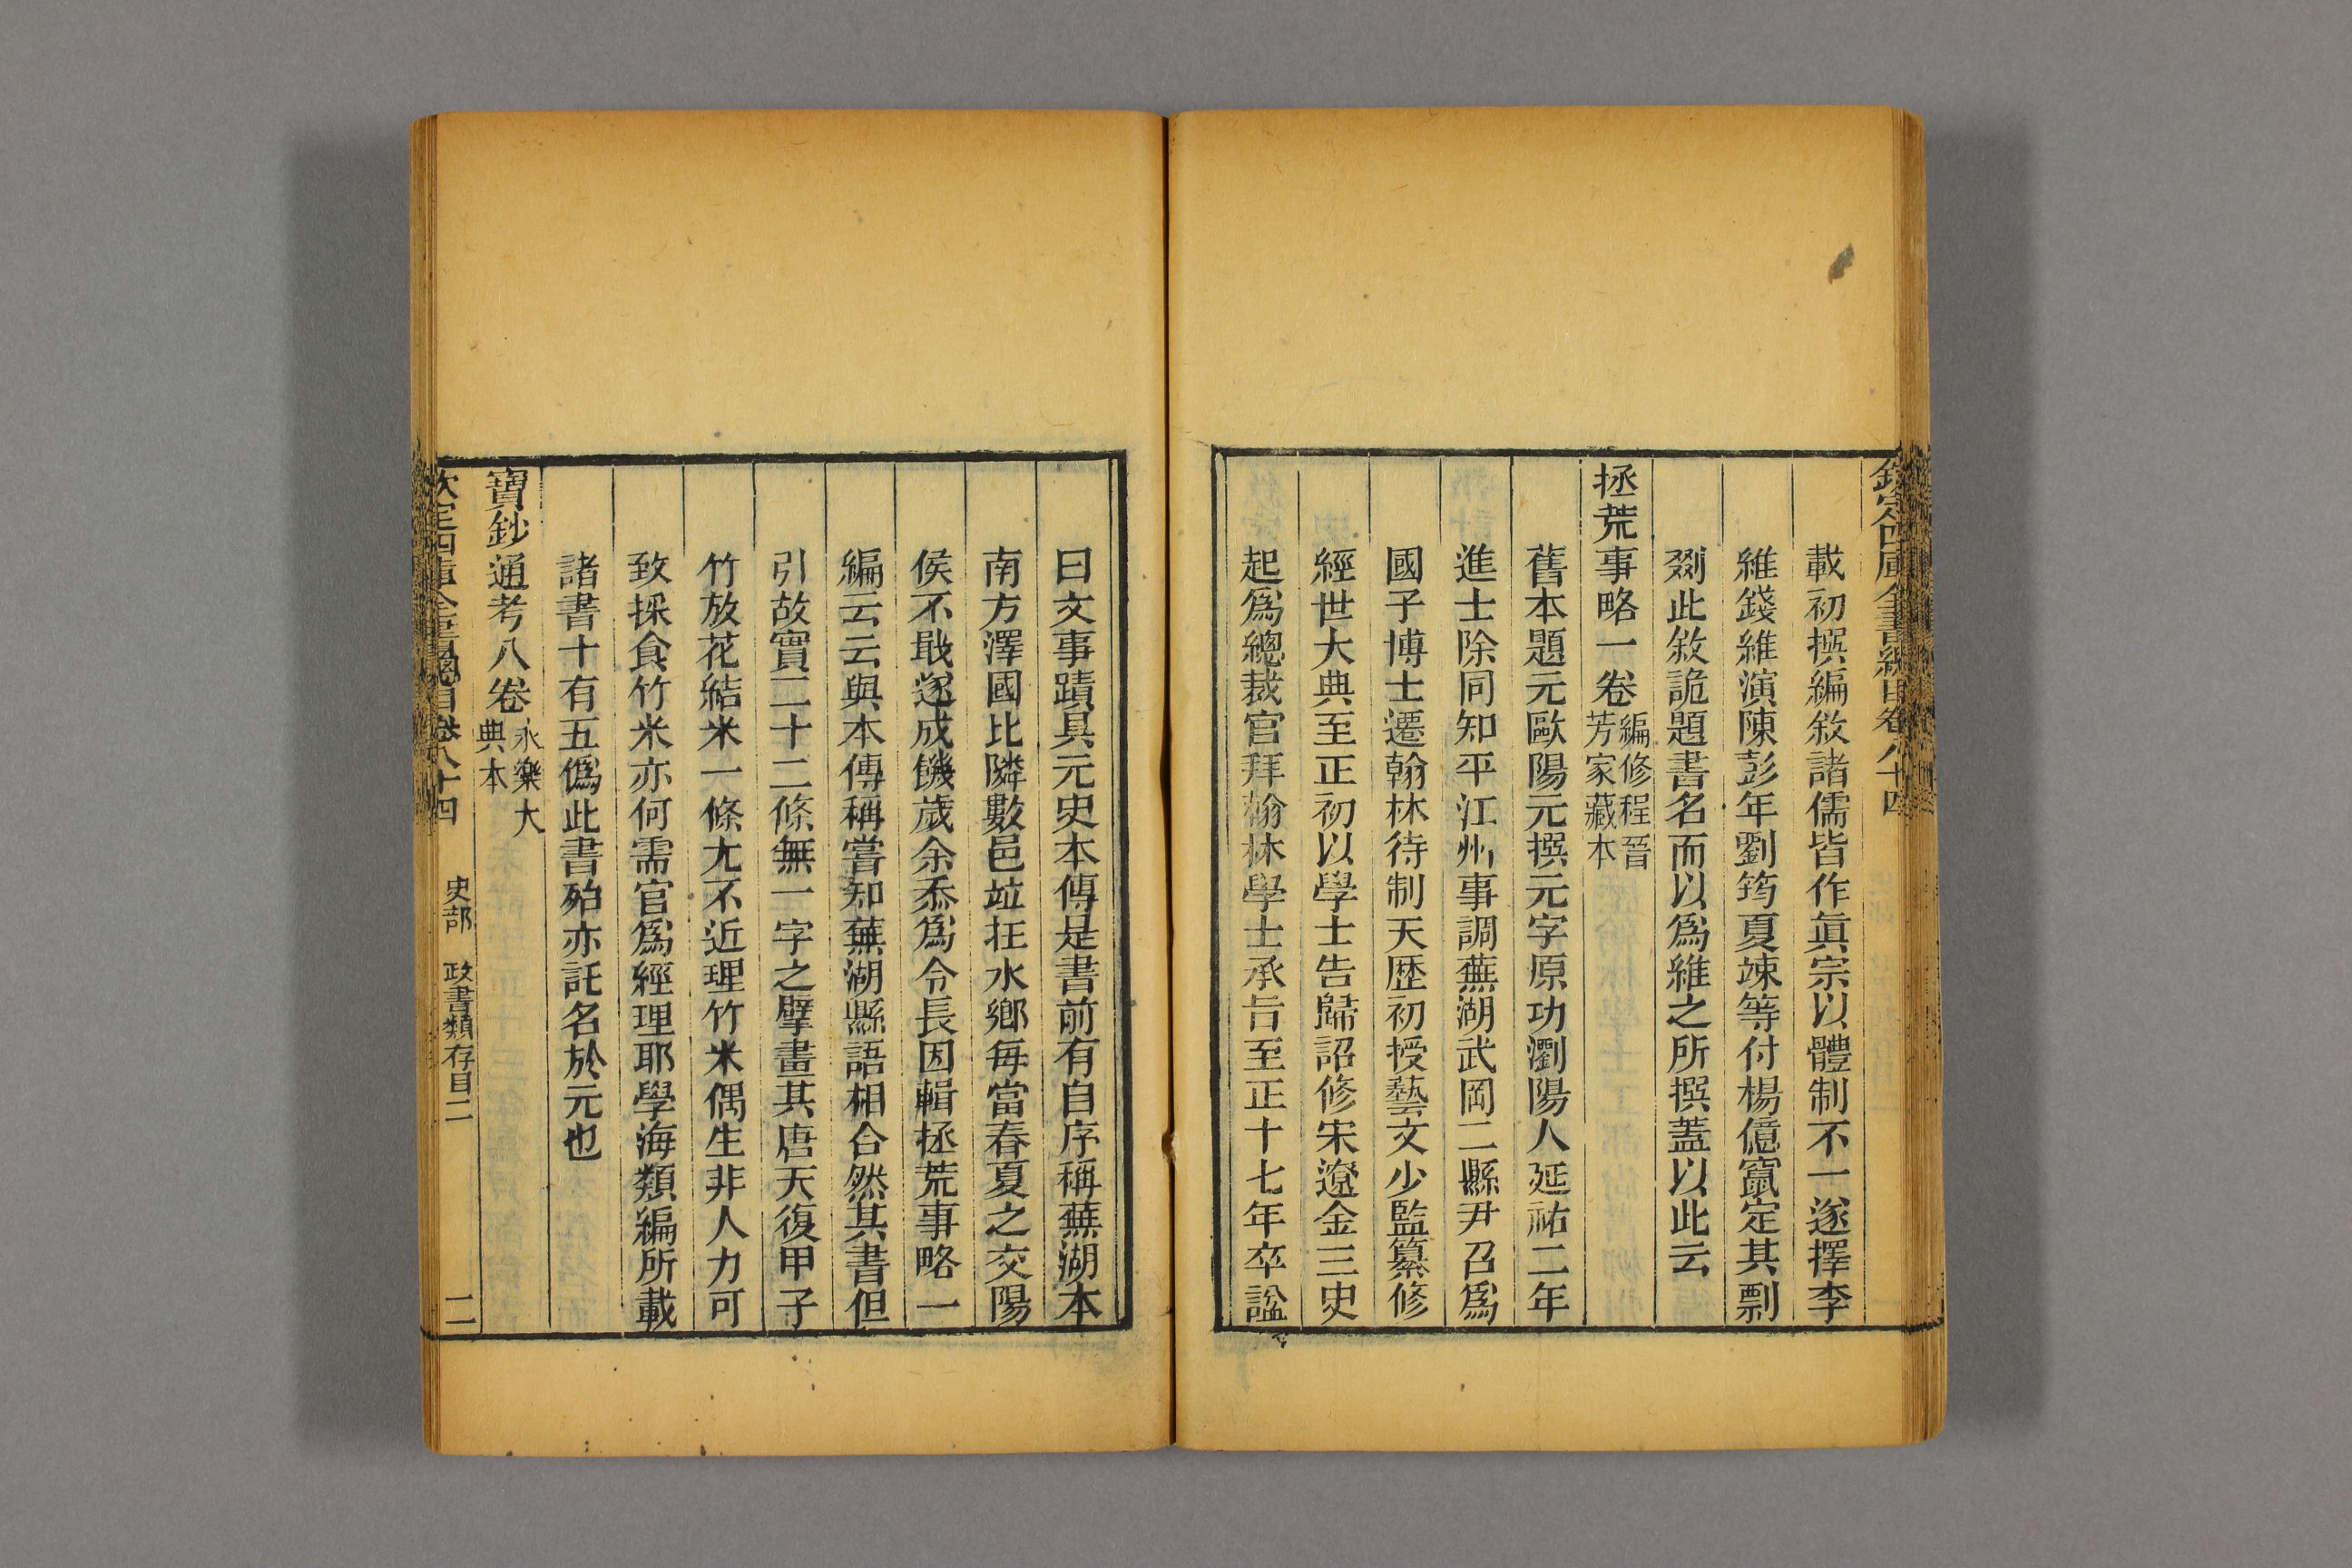 欽定四庫全書總目卷八十四
載初撰編敘諸儒皆作眞宗以體制不一遂擇李
維錢維演陳彭年劉筠夏竦等付楊億竄定其剽
剟此敘詭題書名而以爲維之所撰蓋以此云
拯荒事略一卷
編修程晉
芳家藏本
舊本題元歐陽元撰元字原功瀏陽人延祐二年
進士除同知平江州事調蕪湖武岡二縣尹召爲
國子博士遷翰林待制天歴初授藝文少監纂修
經世大典至正初以學士告歸詔修宋遼金三史
起爲總裁官拜翰林學士承旨至正十七年卒諡
曰文事蹟具元史本傳是書前有自序稱蕪湖本
南方澤國比隣數邑竝在水鄉每當春夏之交陽
侯不戢遂成饑歲余忝爲令長因輯拯荒事略一
編云云與本傳稱嘗知蕪湖縣語相合然其書但
引故實二十二條無一字之擘畫其唐天復甲子
竹放花結米一條尤不近理竹米偶生非人力可
致採食竹米亦何需官爲經理耶學海類編所載
諸書十有五僞此書殆亦託名於元也
寶鈔通考八卷
永樂大
典本
欽定四庫全書總目卷八十四 史部 政書類存目二 二